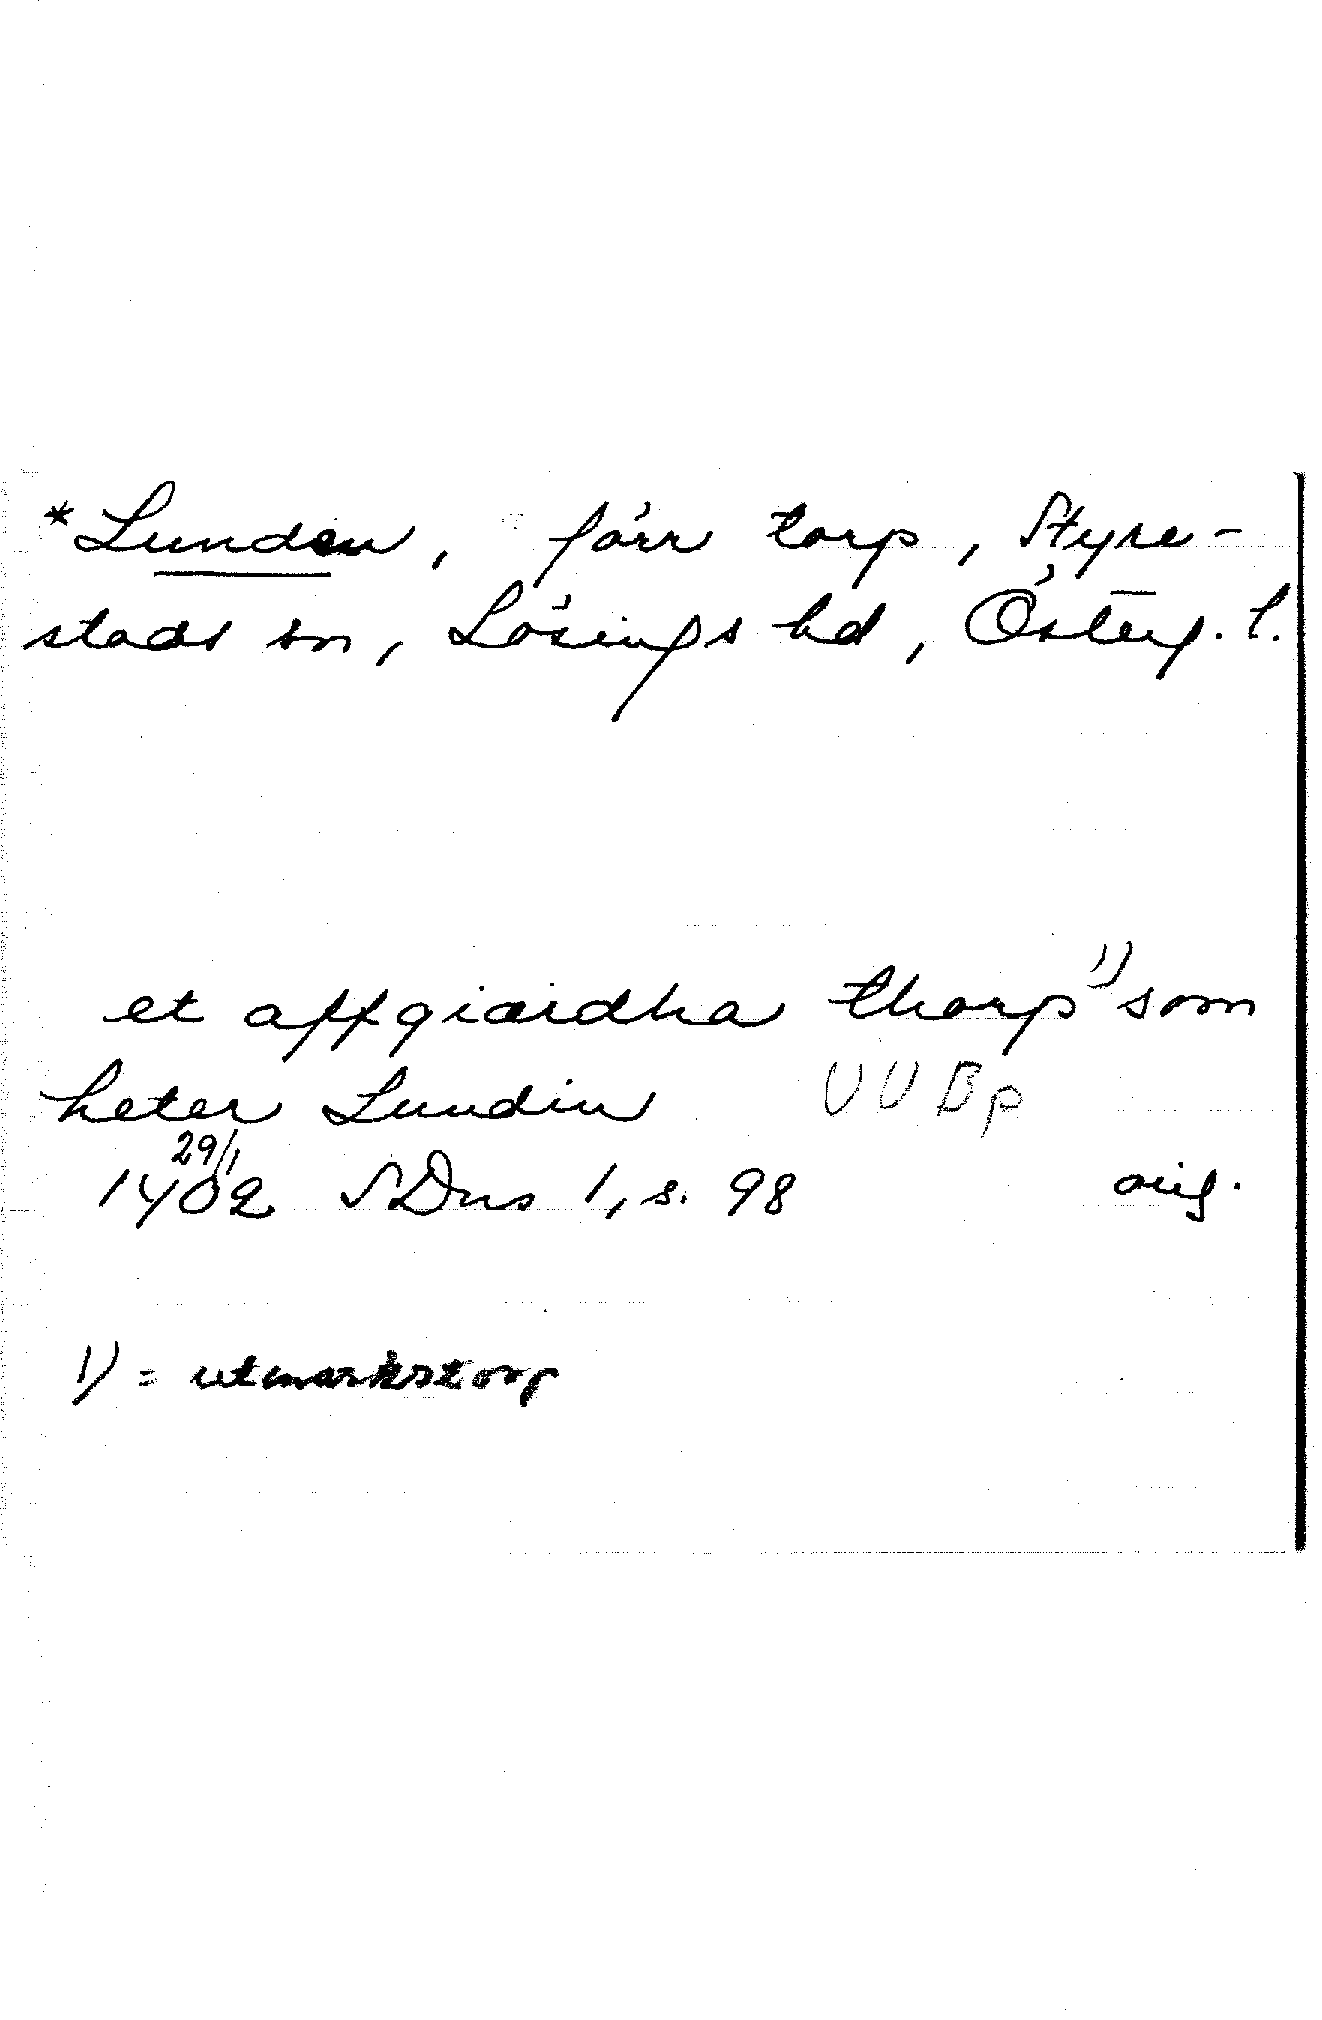 *Lunden, förr torp, Styre-
stads sn, Lösings hd, Österg. l.
et affgiærdha thorp 1) som
heter Lundin UUBp
29/1
1402 SDns 1, s. 98 orig.
1) = utmarkstorp